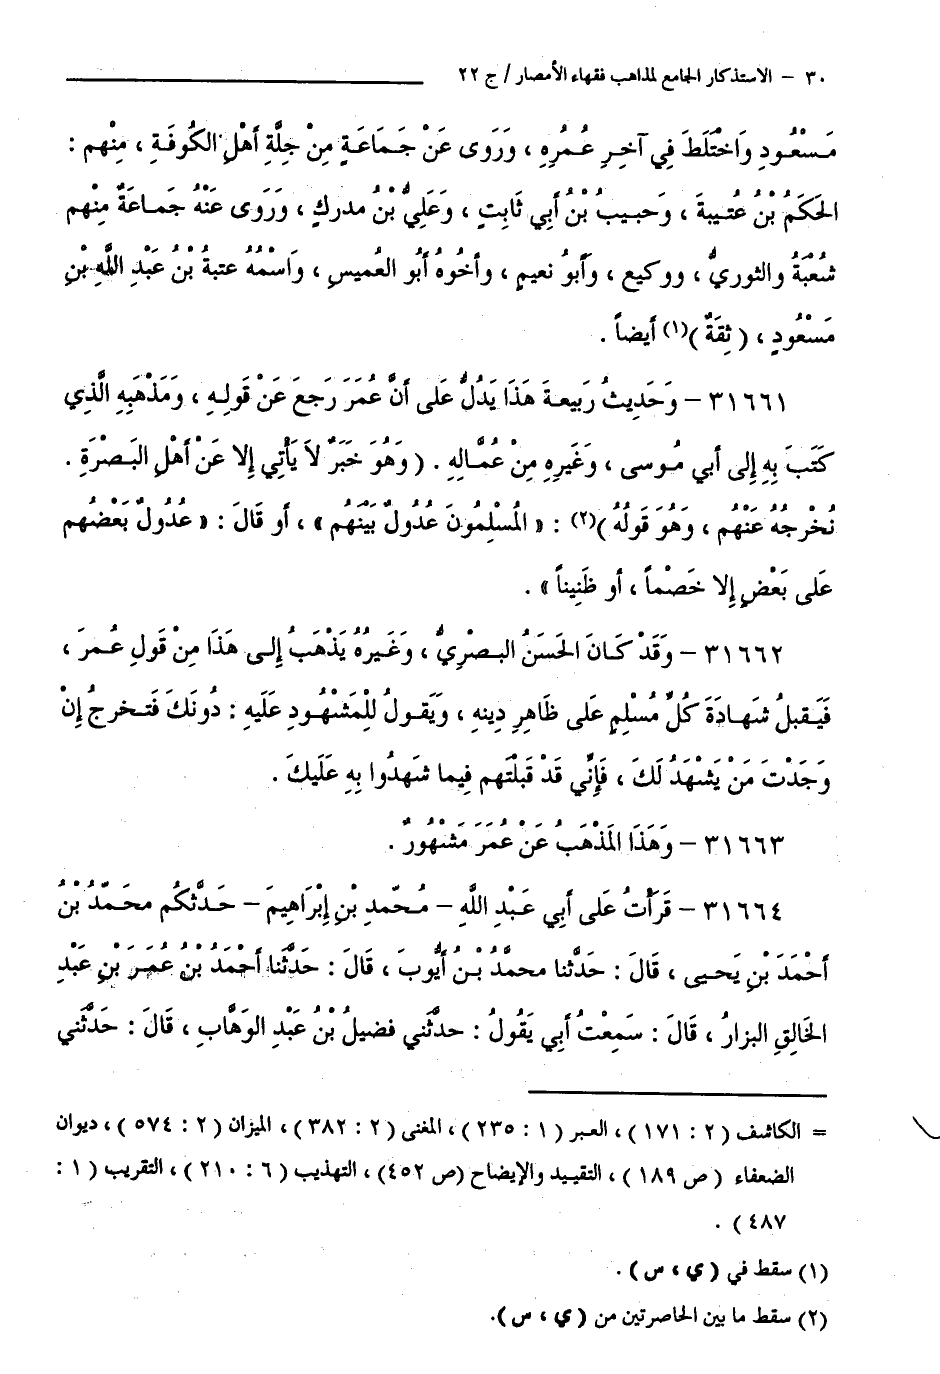 ٣٠ – الاستذكار الجامع لمذاهب فقهاء الأمصار / ج ٢٢
مَسْعُودِ وَاخْتَلَطَ فِي آخِرِ عُمُرِهِ ، وَرَوى عَنْ جَمَاعَةٍ مِنْ جِلَّةِ أَهْلِ الكُوفَةِ ، مِنْهم :
الحَكَمُ بْنُ عُتيبةَ ، وَحبيبُ بْنُ أَبِي ثَابِتٍ ، وَعَلِيُّ بْنُ مدركٍ ، وَرَوى عَنْهُ جَماعَةٌ مِنْهم
شُعْبَةُ والثوريُّ ، ووكيع ، وأَبو نعيمٍ ، وأَخُوهُ أَبُو العُميسِ ، وَاسْمُهُ عتبةُ بْنُ عَبْدِ اللَّهِ بْنِ
مَسْعُودٍ ، ( ثِقَةٌ )(١) أيضاً .
٣١٦٦١ – وَحَدِيثُ رَبيعةَ هَذَا يَدُلُّ عَلى أَنَّ عُمَرَ رَجعَ عَنْ قَولِهِ ، وَمَذْهَبِهِ الَّذِي
كَتَبَ بِهِ إِلى أبي مُوسى ، وَغَيرِهِ مِنْ عُمَّالِهِ . ( وَهُوَ خَبَرٌ لاَ يَأْتِي إِلا عَنْ أَهْلِ البَصْرَةِ .
نُخْرجُهُ عَنْهُم ، وَهُوَ قَولُهُ )(٢) : « الْمُسْلِمُونَ عُدُولٌ بَيْنَهُم » ، أو قَالَ : « عُدُولٌ بَعْضُهم
عَلى بَعْضٍ إِلا خَصْماً ، أو ظَنِيناً » .
٣١٦٦٢ – وَقَدْ كَانَ الحَسَنُ البصْرِيُّ ، وغَيرُهُ يَذْهَبُ إِلى هَذَا مِنْ قَولِ عُمرَ ،
فَيَقبلُ شَهادَةَ كُلِّ مُسْلِمٍ عَلى ظَاهِرِ دِينِهِ ، وَيَقولُ لِلْمَشْهُودِ عَلَيهِ : دُونَكَ فَتخرجُ إِنْ
وَجَدْتَ مَنْ يَشْهَدُ لَكَ ، فَإِنِّي قَدْ قَبلْتَهم فِيما شَهِدُوا بِهِ عَلَيكَ .
٣١٦٦٣ – وَهَذَا الْمَذْهَبُ عَنْ عُمَرَ مَشْهُورٌ .
٣١٦٦٤ – قَرَأْتُ عَلى أَبِي عَبْدِ اللَّهِ – مُحمّدِ بْنِ إِبْرَاهِيمَ – حَدَّثكُم محمَّدُ بْنُ
أَحْمَدَ بْنِ يَحيى ، قَالَ : حَدَّثنا محمدُ بْنُ أَيُّوبَ ، قَالَ : حَدَّثَنا أَحْمَدُ بْنُ عُمَرَ بْنِ عَبْدِ
الخَالِقِ البزارُ ، قَالَ : سَمِعْتُ أَبِي يَقُولُ : حدثَني فضيلُ بْنُ عَبْدِ الوَهَّابِ ، قَالَ : حَدَّثَني
= الكاشف ( ٢ : ١٧١ ) ، العبر ( ١ : ٢٣٥ ) ، المغنى ( ٢ : ٣٨٢ ) ، الميزان ( ٢ : ٥٧٤ ) ، ديوان
الضعفاء ( ص ١٨٩ ) ، التقييد والإيضاح (ص ٤٥٢) ، التهذيب ( ٦ : ٢١٠ ) ، التقريب ( ١ :
٤٨٧ ) .
(١) سقط في ( ي ، س ) .
(٢) سقط ما بين الحاصرتين من ( ي ، س ).